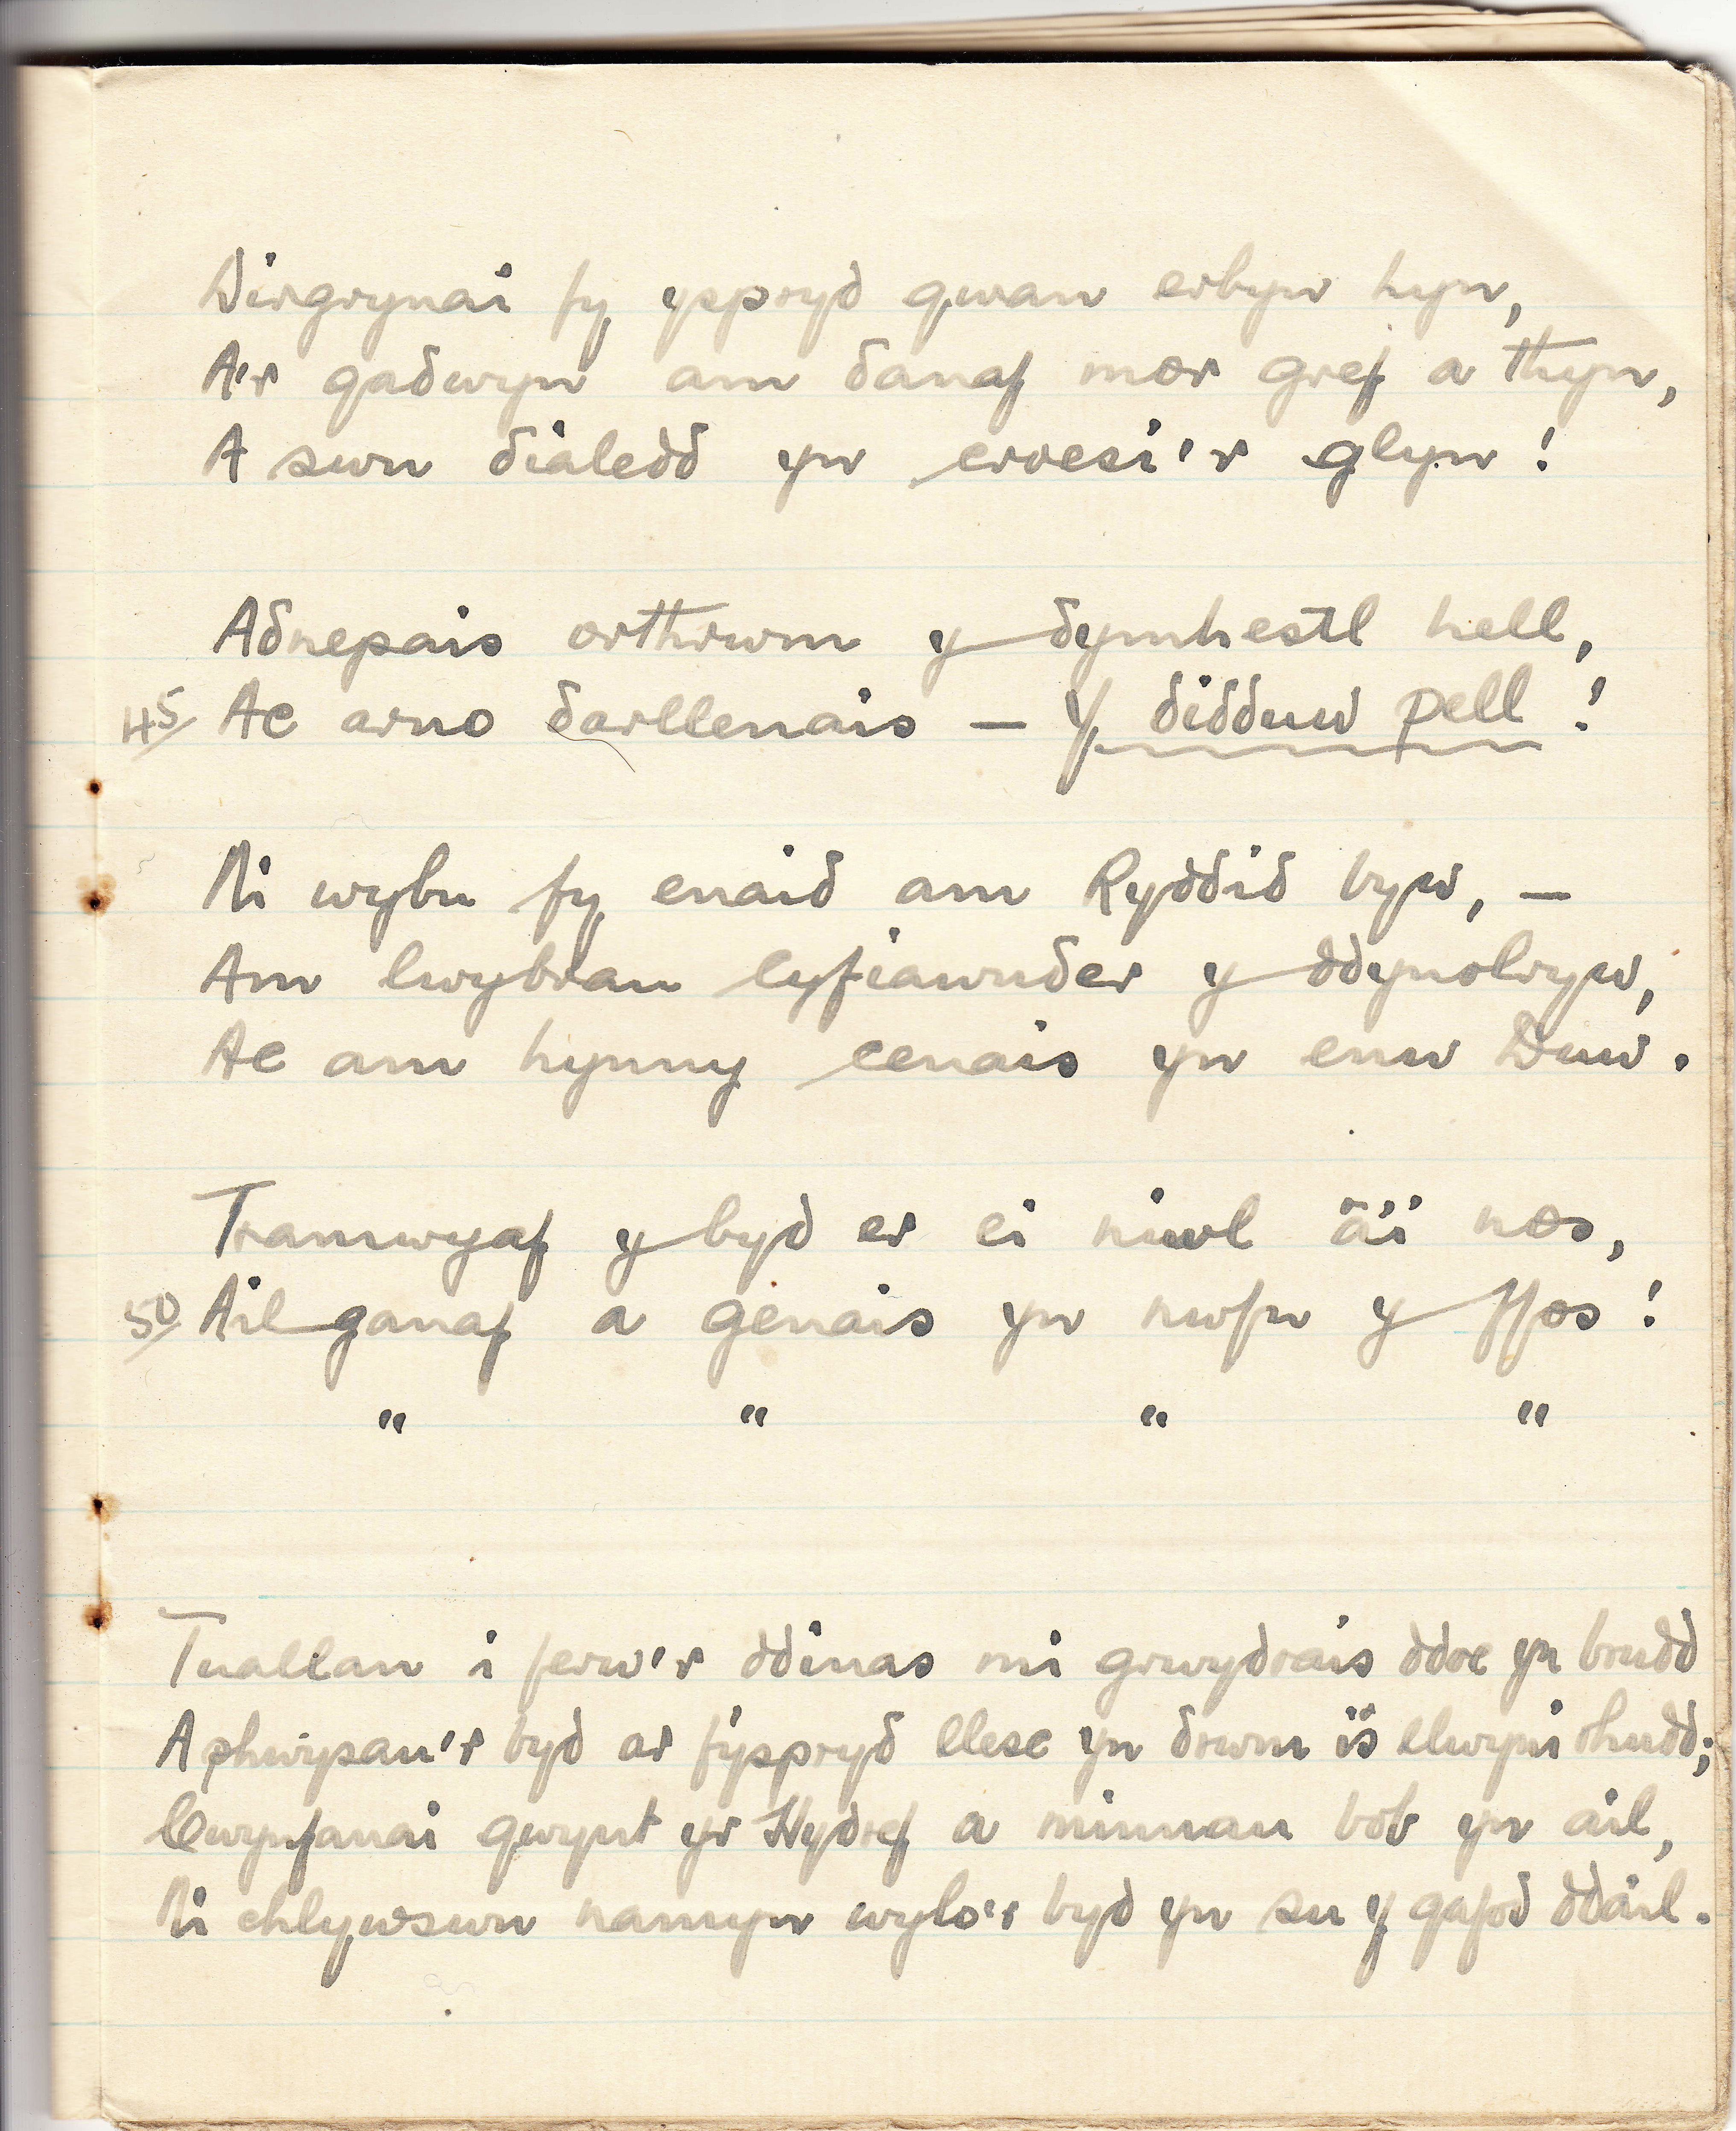 Dirgrynai fy yspryd gwan erbyn hyn,
A'r gadwyn am danaf mor gref a thyn,
A swn dialedd yn croesi'r glyn!
Adnepais orthrwm y dymhestl hell,
45/ Ac arno darllenais — Y didduw pell!
Ni wybu fy enaid am Ryddid byw, —
Am lwybrau cyfiawnder y ddynolryw,
Ac am hynny cenais yn enw Duw.
Tramwyaf y byd er ei niwl a'i nos,
50/ Ail ganaf a genais yn nwfn y ffos!
" " " "
Tuallan i ferw'r ddinas mi grwydrais ddoe yn brudd
A phwysau'r byd ar fy spryd llesc yn drwm is llwyni rhudd;
Cwynfanai gwynt yr Hydref a minnau bob yn ail,
Ni chlywswn namyn wylo'r byd yn su y gafod ddail.